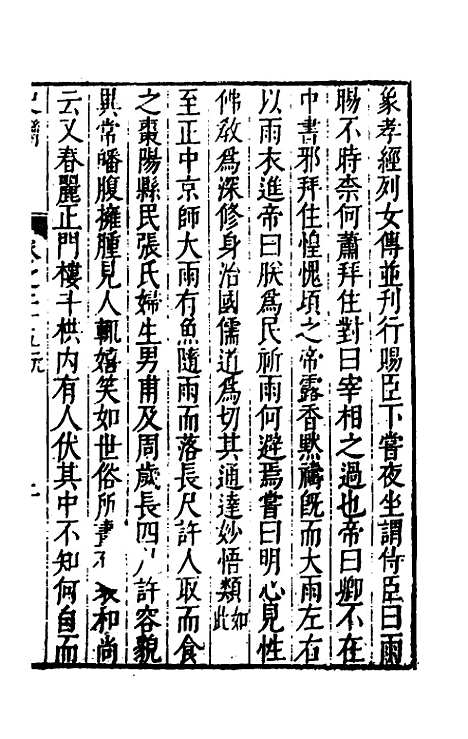 象孝經列女傳並刊行賜臣下嘗夜坐謂侍臣曰雨
暘不時柰何蕭拜住對曰宰相之過也帝曰卿不在
中書邪拜住惶愧頃之帝露香黙禱旣而大雨左右
以雨衣進帝曰朕爲民祈雨何避焉嘗曰明心見性
佛敎爲深修身治國儒道爲切其通達妙悟類如此
至正中京師大雨有魚隨雨而落長尺許人取而食
之棗陽縣民張氏婦生男甫及周歲長四尺許容貌
異常皤腹擁腫見人輒嬉笑如世俗所畫布和尚
云又春麗正門樓斗栱内有人伏其中不知何自而